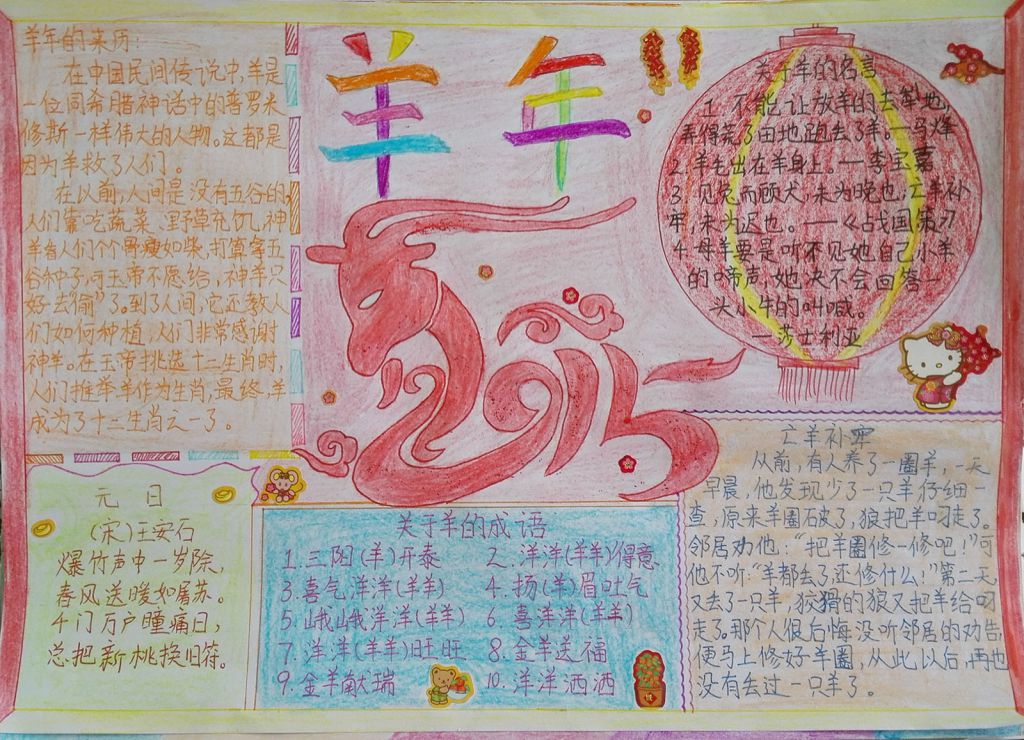 羊年的来历:
在中国民间传说中,羊是
一位同希腊神话中的普罗米
修斯一样伟大的人物。这都是
因为羊救了人们。
在以前,人间是没有五谷的,
人们靠吃蔬菜、野草充饥。神
羊看人们个个骨瘦如柴,打算拿五
谷种子,可玉帝不愿给,神羊只
好去“偷”了。到了人间,它还教人
们如何种植,人们非常感谢
神羊。在玉帝挑选十二生肖时,
人们推举羊作为生肖,最终,羊
成为了十二生肖云一了。
羊年
2015
关于羊的名言
1.不能让放羊的去种地,
弄得荒了田地跑去了羊。—马烽
2.羊毛出在羊身上。——李宝嘉
3.见兔而顾犬,未为晚也,亡羊补
牢,未为迟也。——《战国策》
4.母羊要是听不见她自己小羊
的啼声,她决不会回答一
头小牛的叫喊。
—莎士利亚
元日
(宋)王安石
爆竹声中一岁除,
春风送暖如屠苏。
千门万户瞳瞳日,
总把新桃换旧符。
关于羊的成语
1.三阳(羊)开泰
2.洋洋(羊羊)得意
3.喜气洋洋(羊羊)
4.扬(羊)眉吐气
5.峨峨洋洋(羊羊)
6.喜洋洋(羊羊)
7.洋洋(羊羊)旺旺
8.金羊送福
9.金羊献瑞
10.洋洋洒洒
亡羊补牢
从前,有人养了一圈羊,一天
早晨,他发现少了一只羊仔细一
查,原来羊圈破了,狼把羊叼走了。
邻居劝他:“把羊圈修一修吧!”可
他不听:“羊都丢了,还修什么!”第二天,
又去了一只羊,狡猾的狼又把羊给叼
走了。那个人很后悔没听邻居的劝告,
便马上修好羊圈,从此以后,再也
没有丢过一只羊了。